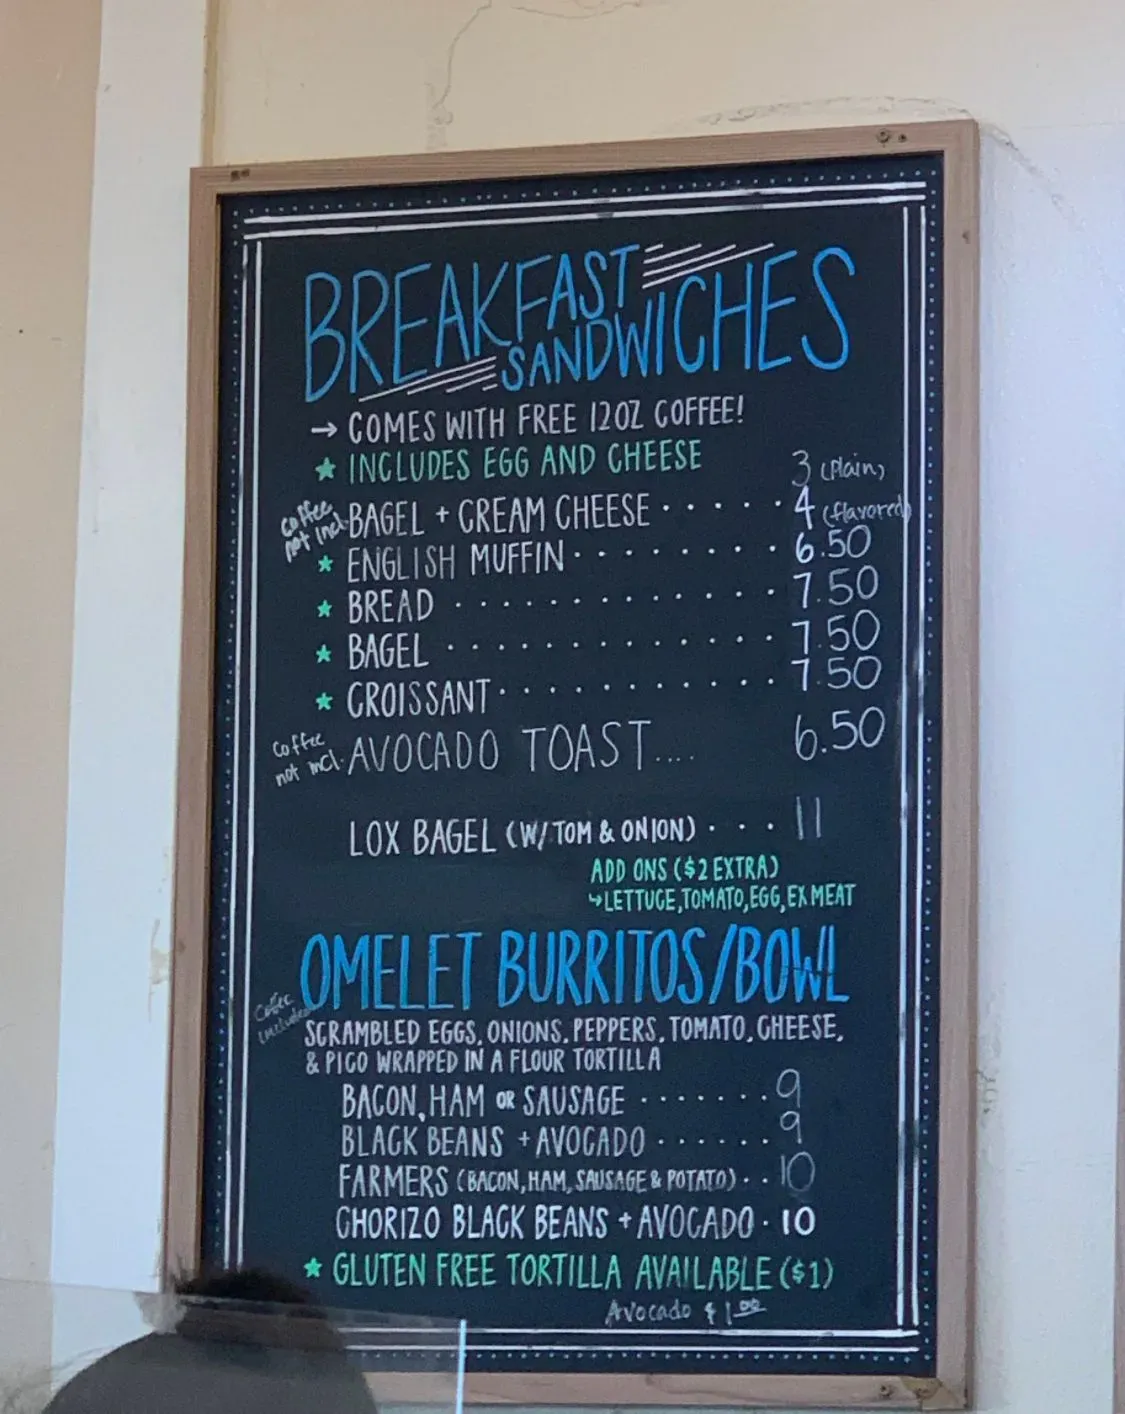 BREAKFAST
SANDWICHES
→ COMES WITH FREE 12OZ COFFEE!
★ INCLUDES EGG AND CHEESE
3 (plain)
coffee not incl. BAGEL + CREAM CHEESE · · · · · 4 (flavored)
★ ENGLISH MUFFIN · · · · · · · · 6.50
★ BREAD · · · · · · · · · · · · 7.50
★ BAGEL · · · · · · · · · · · · 7.50
★ CROISSANT · · · · · · · · · · · 7.50
coffee not incl. AVOCADO TOAST.... 6.50
LOX BAGEL (W/ TOM & ONION) · · · 11
ADD ONS ($2 EXTRA)
↳ LETTUCE, TOMATO, EGG, EX MEAT
OMELET BURRITOS/BOWL
Coffee included
SCRAMBLED EGGS, ONIONS, PEPPERS, TOMATO, CHEESE,
& PICO WRAPPED IN A FLOUR TORTILLA
BACON, HAM OR SAUSAGE · · · · · · · 9
BLACK BEANS + AVOCADO · · · · · · 9
FARMERS (BACON, HAM, SAUSAGE & POTATO) · · 10
CHORIZO BLACK BEANS + AVOCADO · 10
★ GLUTEN FREE TORTILLA AVAILABLE ($1)
Avocado $1.00